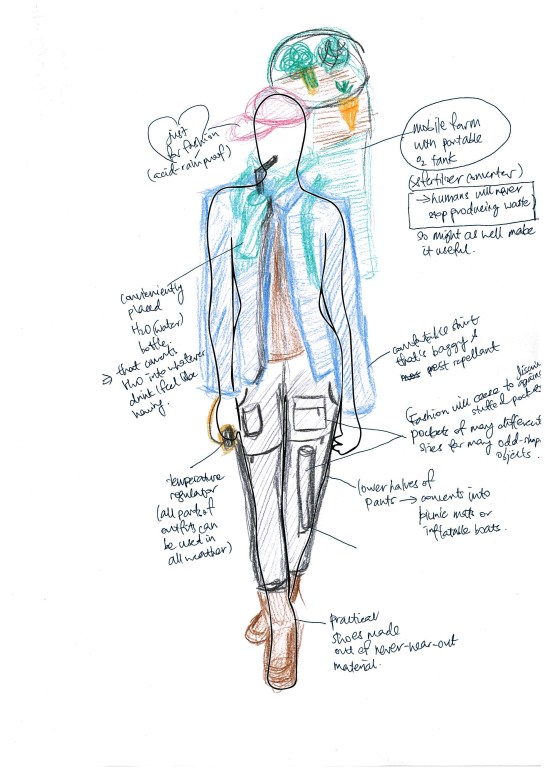 just
for fashion
(acid-rain proof)
mobile farm
with portable
O2 tank
(& fertilizer converter)
→ humans will never
stop producing waste
so might as well make
it useful.
conveniently
placed
H2O (water)
bottle
⇒ that converts
H2O into whatever
drink i feel like
having.
comfortable shirt
that's baggy &
pest repellant
Fashion will cease to discrim
against
stuffed pockets
pockets of many different
sizes for many odd-shap
objects.
temperature
regulator
(all parts of
outfits can
be used in
all weather)
lower halves of
pants → converts into
picnic mats or
inflatable boats.
practical
shoes made
out of never-wear-out
material.